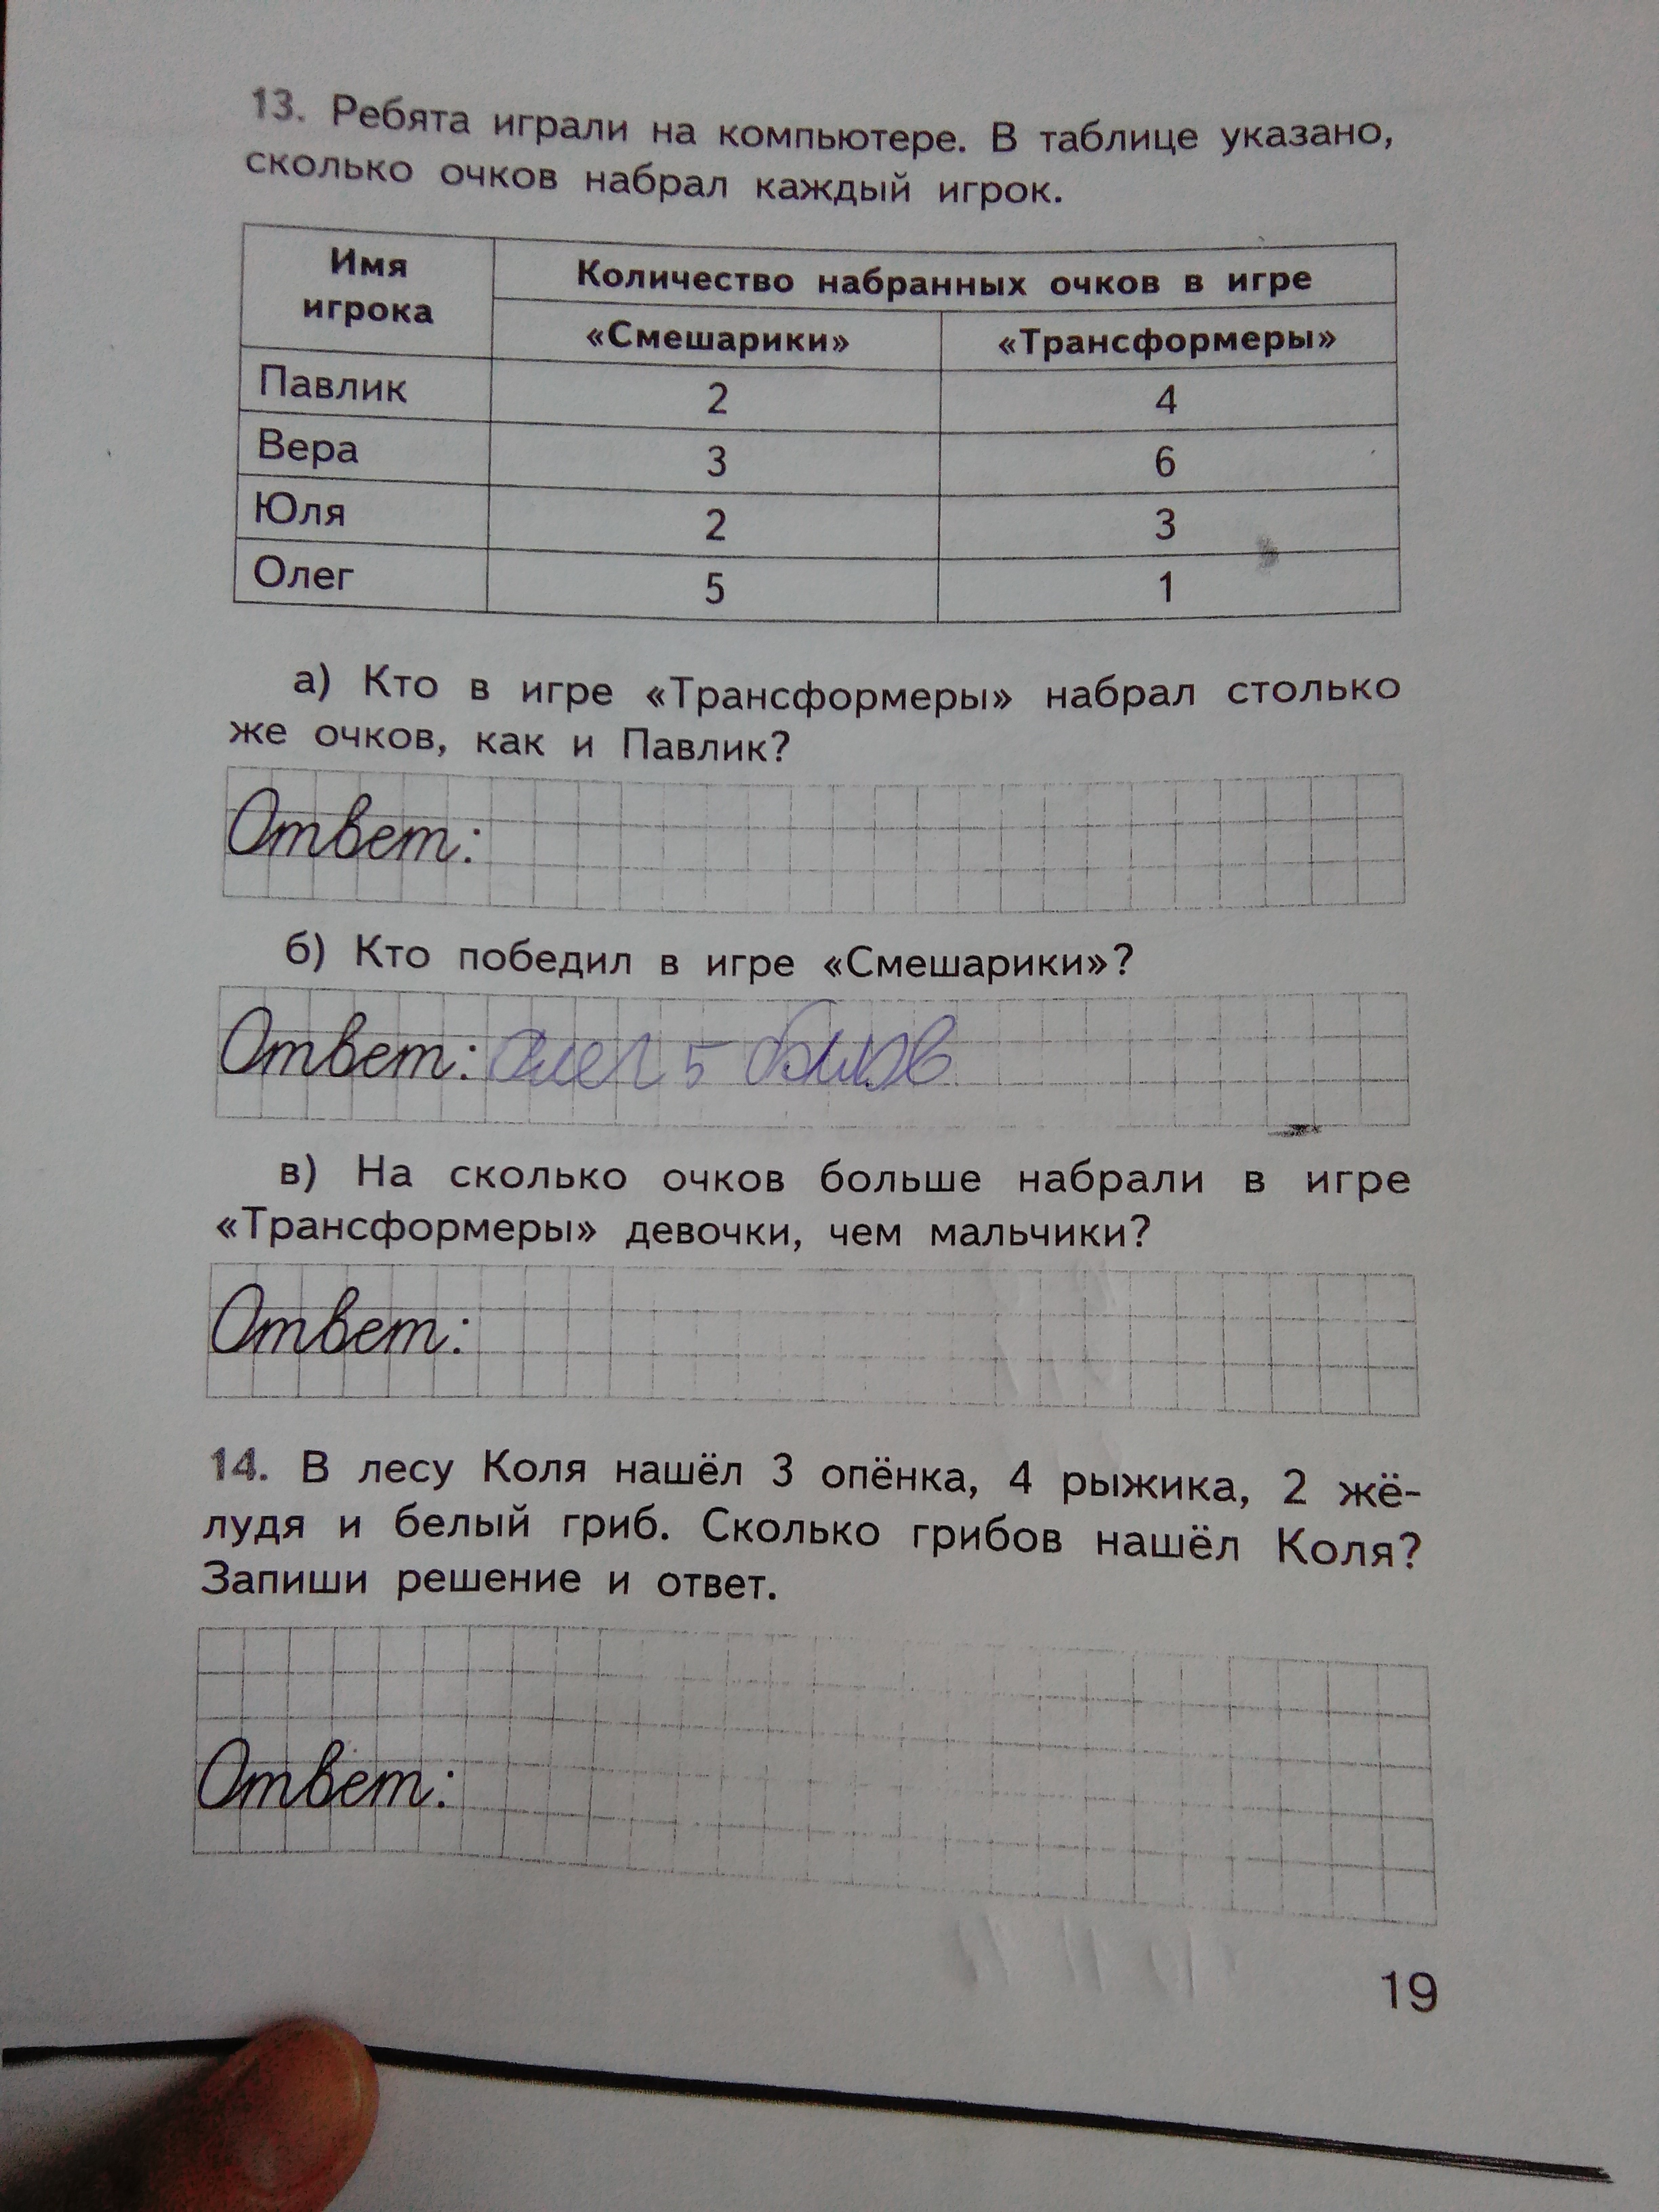 13. Ребята играли на компьютере. В таблице указано,
сколько очков набрал каждый игрок.
Имя игрока
Количество набранных очков в игре
«Смешарики» «Трансформеры»
Павлик 2 4
Вера 3 6
Юля 2 3
Олег 5 1
а) Кто в игре «Трансформеры» набрал столько
же очков, как и Павлик?
Ответ:
б) Кто победил в игре «Смешарики»?
Ответ: олег 5
в) На сколько очков больше набрали в игре
«Трансформеры» девочки, чем мальчики?
Ответ:
14. В лесу Коля нашёл 3 опёнка, 4 рыжика, 2 жё-
лудя и белый гриб. Сколько грибов нашёл Коля?
Запиши решение и ответ.
Ответ:
19